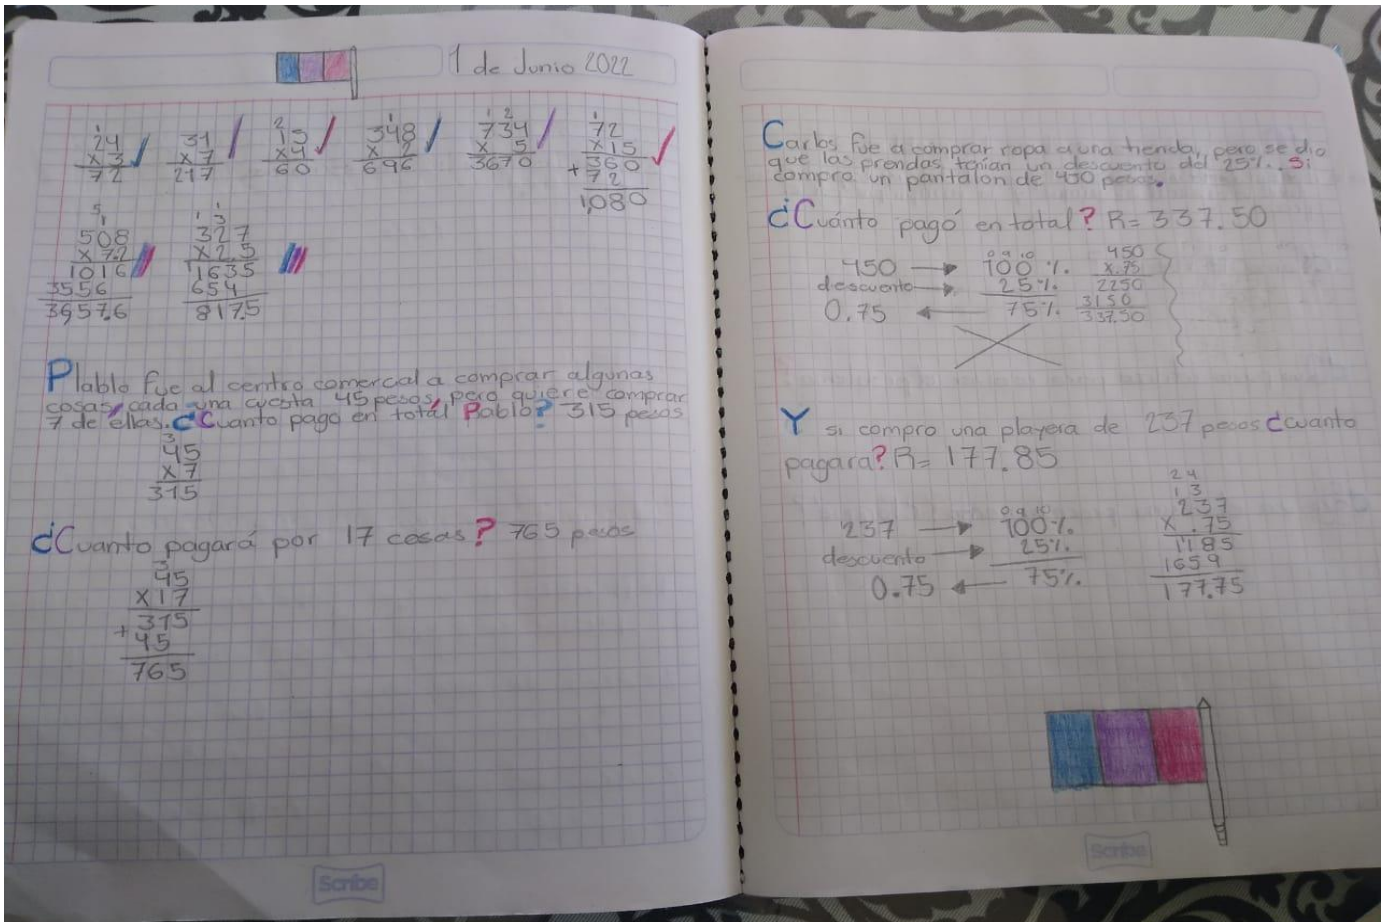 1 de Junio 2022
1
24
x3
72
31
x7
217
2
15
x4
60
1
348
x 2
696
1 2
734
x 5
3670
1
72
x15
360
+72
1,080
5
1
508
x7.2
1016
3556
3657.6
1 3
1
327
x2.5
1635
654
817.5
Plablo fue al centro comercial a comprar algunas
cosas, cada una cuesta 45 pesos, pero quiere comprar
7 de ellas. ¿Cuanto pago en total Pablo? 315 pesos
3
45
x7
315
¿Cuanto pagará por 17 cosas? 765 pesos
3
45
x17
315
+45
765
Scribe
Carlos fue a comprar ropa a una tienda, pero se dio
que las prendas tenían un descuento del 25%. Si
compro un pantalon de 450 pesos.
¿Cuánto pagó en total? R= 337.50
0 9 10
450 → 100 %.
descuento → 25%.
0.75 ← 75%.
450
x.75
2250
3150
337.50
Y si compro una playera de 237 pesos ¿cuanto
pagara? R= 177.85
0 9 10
237 → 100%.
descuento → 25%.
0.75 ← 75%.
2 4
1 3
237
x .75
1185
1659
177.75
Scribe